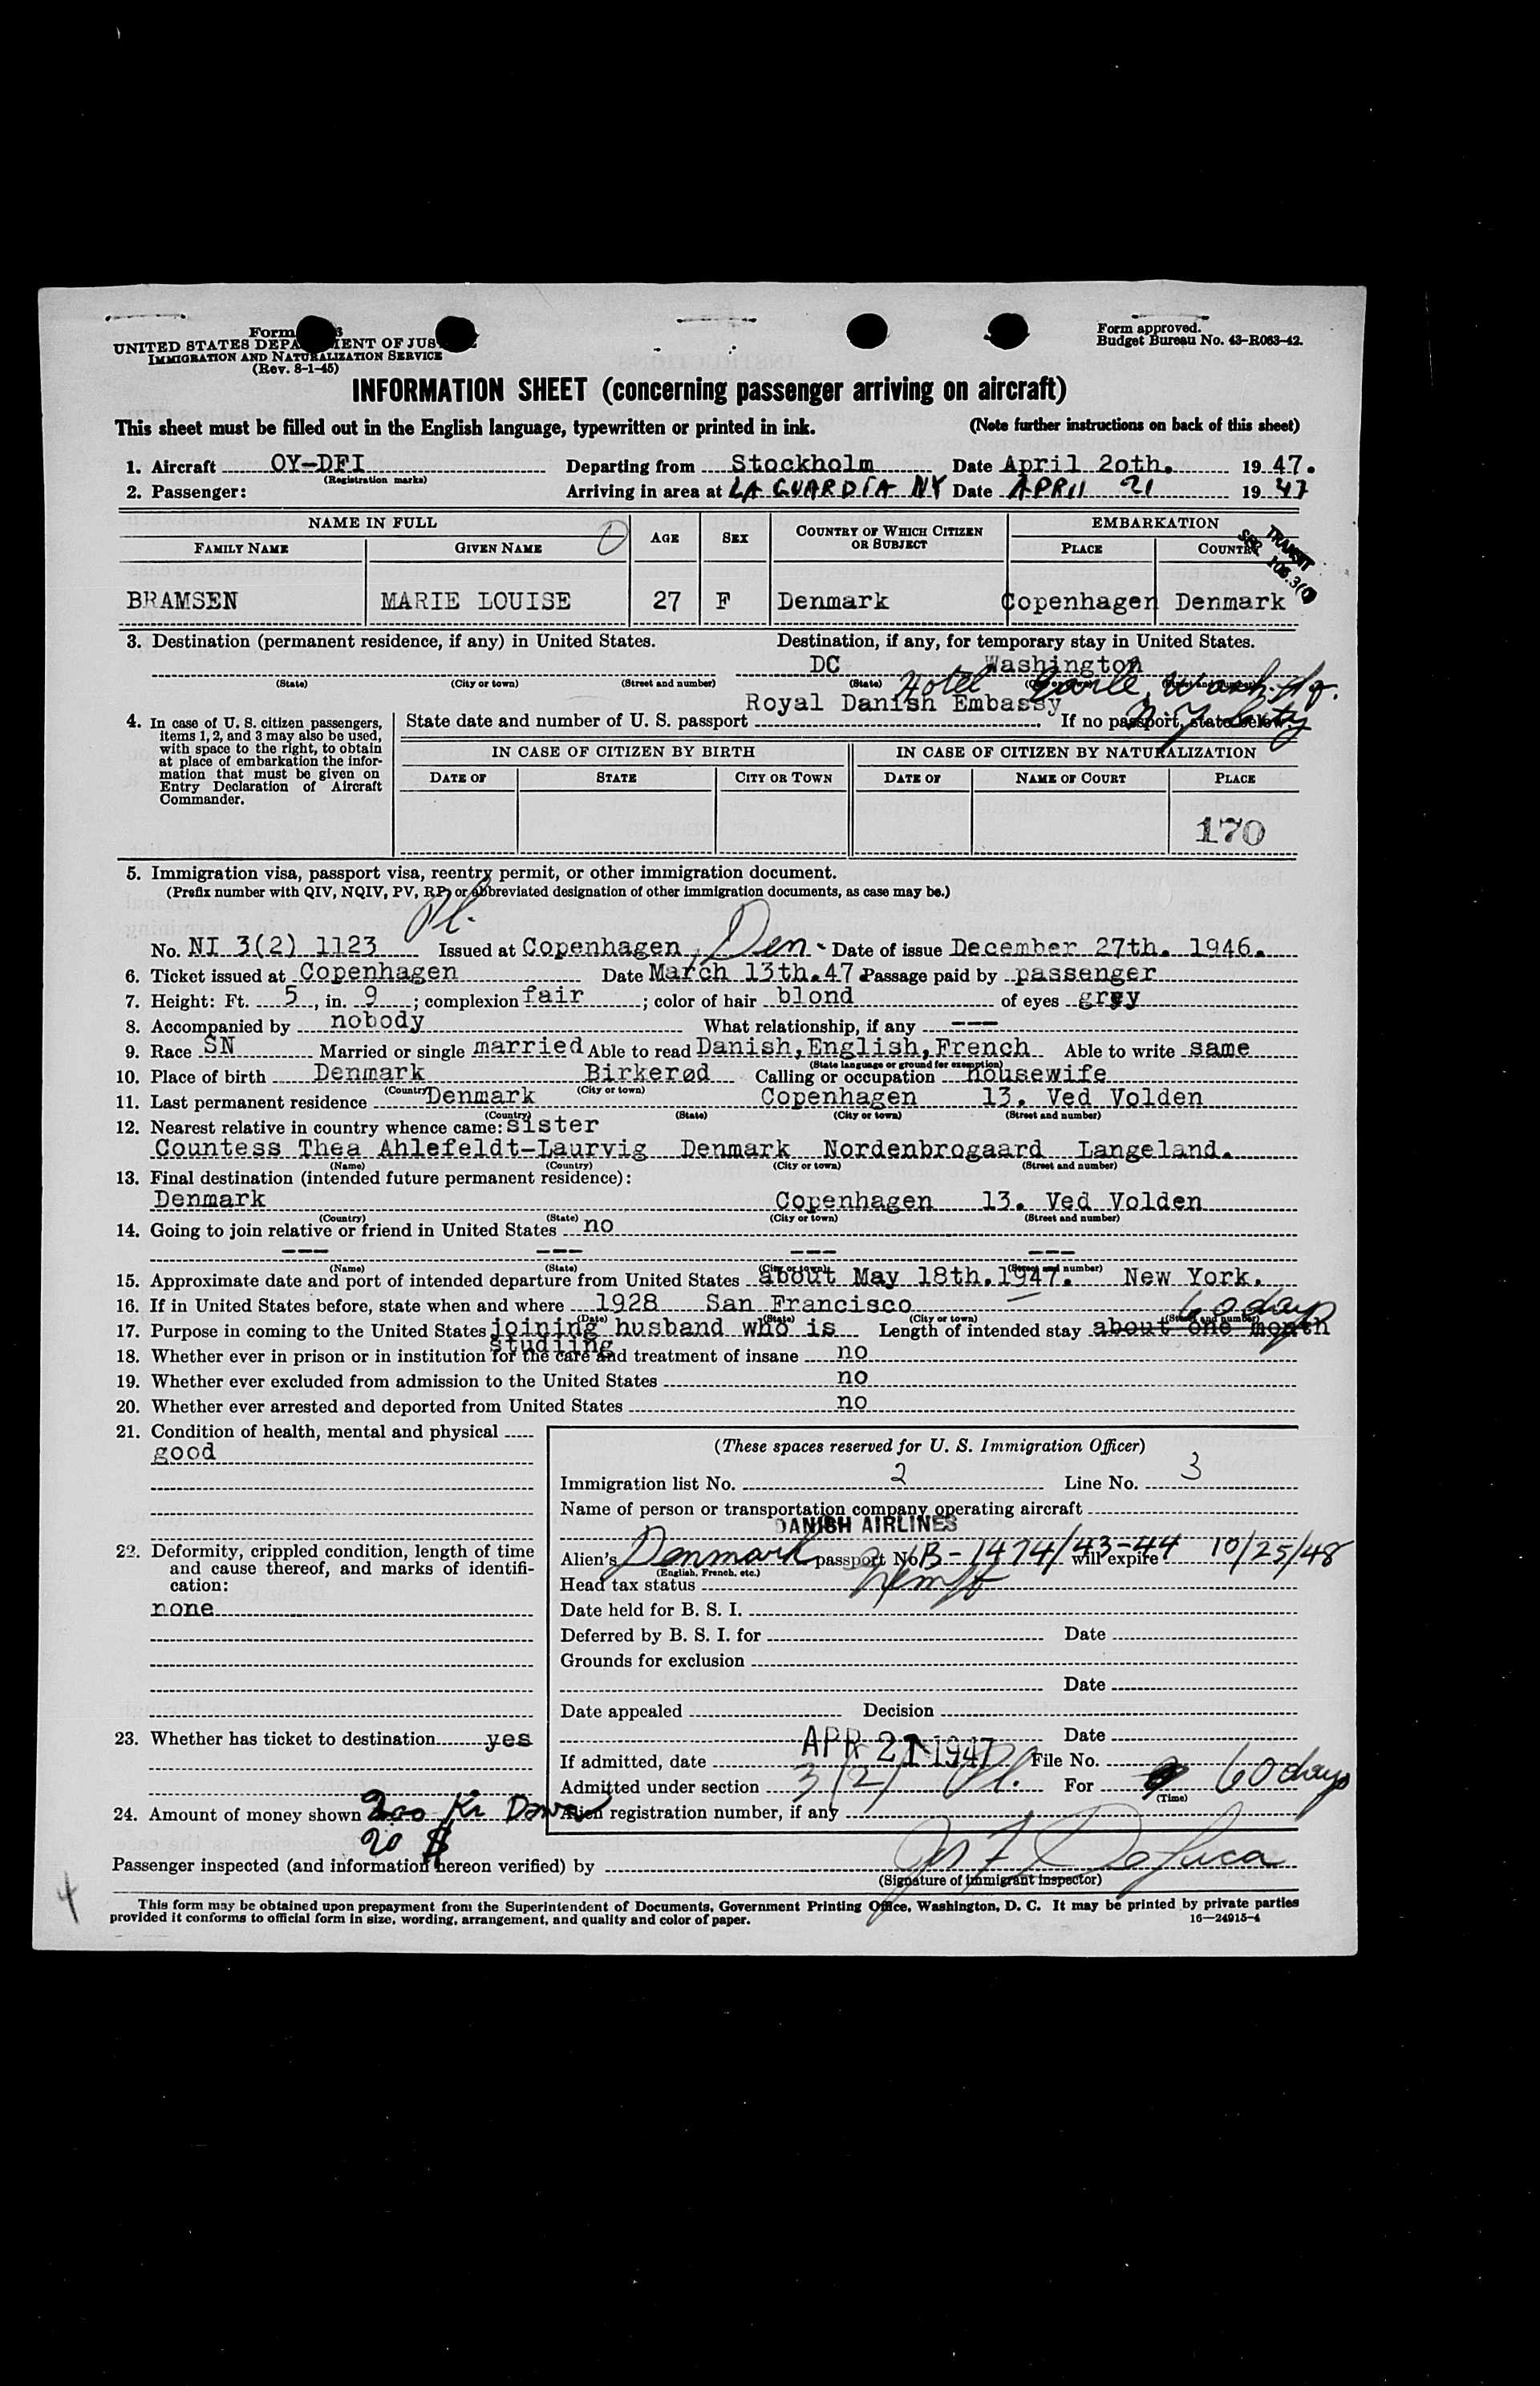 Form
UNITED STATES DEPA MENT OF JUS
IMMIGRATION AND NATURALIZATION SERVICE
(Rev. 8-1-45)
Form approved.
Budget Bureau No. 43-R063-42.
INFORMATION SHEET (concerning passenger arriving on aircraft)
This sheet must be filled out in the English language, typewritten or printed in ink. (Note further instructions on back of this sheet)
1. Aircraft OY-DFI Departing from Stockholm Date April 2oth. 19 47.
(Registration marks)
2. Passenger: Arriving in area at LA GUARDIA NY Date APRIL 21 19 47
NAME IN FULL AGE SEX COUNTRY OF WHICH CITIZEN OR SUBJECT EMBARKATION
FAMILY NAME GIVEN NAME PLACE COUNTRY
TRANSIT
BRAMSEN MARIE LOUISE 27 F Denmark Copenhagen Denmark
3. Destination (permanent residence, if any) in United States. Destination, if any, for temporary stay in United States.
DC Washington
(State) (City or town) (Street and number) (State) Hotel Earle, Wash. Sq.
Royal Danish Embassy N Y City
4. In case of U. S. citizen passengers, items 1, 2, and 3 may also be used, with space to the right, to obtain at place of embarkation the information that must be given on Entry Declaration of Aircraft Commander.
State date and number of U. S. passport . If no passport, state below:
IN CASE OF CITIZEN BY BIRTH IN CASE OF CITIZEN BY NATURALIZATION
DATE OF STATE CITY OR TOWN DATE OF NAME OF COURT PLACE
170
5. Immigration visa, passport visa, reentry permit, or other immigration document.
(Prefix number with QIV, NQIV, PV, RP, or abbreviated designation of other immigration documents, as case may be.)
Pl.
No. NI 3(2) 1123 Issued at Copenhagen, Den- Date of issue December 27th. 1946.
6. Ticket issued at Copenhagen Date March 13th.47 Passage paid by passenger
7. Height: Ft. 5, in. 9; complexion fair; color of hair blond of eyes grey
8. Accompanied by nobody What relationship, if any ---
9. Race SN Married or single married Able to read Danish,English,French Able to write same
(State language or ground for exemption)
10. Place of birth Denmark Birkerød Calling or occupation housewife
(Country) (City or town)
11. Last permanent residence Denmark Copenhagen 13. Ved Volden
(Country) (State) (City or town) (Street and number)
12. Nearest relative in country whence came: sister
Countess Thea Ahlefeldt-Laurvig Denmark Nordenbrogaard Langeland.
(Name) (Country) (City or town) (Street and number)
13. Final destination (intended future permanent residence):
Denmark Copenhagen 13. Ved Volden
(Country) (State) (City or town) (Street and number)
14. Going to join relative or friend in United States no
--- --- --- ---
(Name) (State) (City or town) (Street and number)
15. Approximate date and port of intended departure from United States about May 18th.1947. New York.
16. If in United States before, state when and where 1928 San Francisco
(Date) (State) (City or town) (Street and number)
60 days
17. Purpose in coming to the United States joining husband who is Length of intended stay about one month
studiing
18. Whether ever in prison or in institution for the care and treatment of insane no
19. Whether ever excluded from admission to the United States no
20. Whether ever arrested and deported from United States no
21. Condition of health, mental and physical
good
22. Deformity, crippled condition, length of time and cause thereof, and marks of identification:
none
23. Whether has ticket to destination yes
24. Amount of money shown 200 Kr Dansk
20 $
(These spaces reserved for U. S. Immigration Officer)
Immigration list No. 2 Line No. 3
Name of person or transportation company operating aircraft
DANISH AIRLINES
Alien's Denmark passport No. B-1474/43-44 will expire 10/25/48
(English, French, etc.)
Head tax status Exempt
Date held for B. S. I.
Deferred by B. S. I. for Date
Grounds for exclusion
Date
Date appealed Decision
Date
If admitted, date APR 21 1947 File No.
Admitted under section 3(2) Pl. For 60 days
(Time)
Alien registration number, if any
Passenger inspected (and information hereon verified) by Jos F De Luca
(Signature of immigrant inspector)
4
This form may be obtained upon prepayment from the Superintendent of Documents, Government Printing Office, Washington, D. C. It may be printed by private parties
provided it conforms to official form in size, wording, arrangement, and quality and color of paper. 16—24915-4